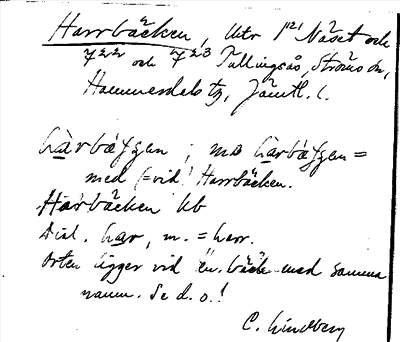 Harrbäcken, Utr 1²¹ Näset och
7²² och 7²³ Tullingsås, Ströms sn,
Hammerdals tg, Jämtl. l.
hàrbæ̀ʃʃen; mɷ hàrbæ̀ʃʃen =
med (=vid) Harrbäcken.
Harbäcken kb
Dial. har, m. = harr.
Orten ligger vid en bäck med samma
namn. Se d. o.!
C. Lindberg